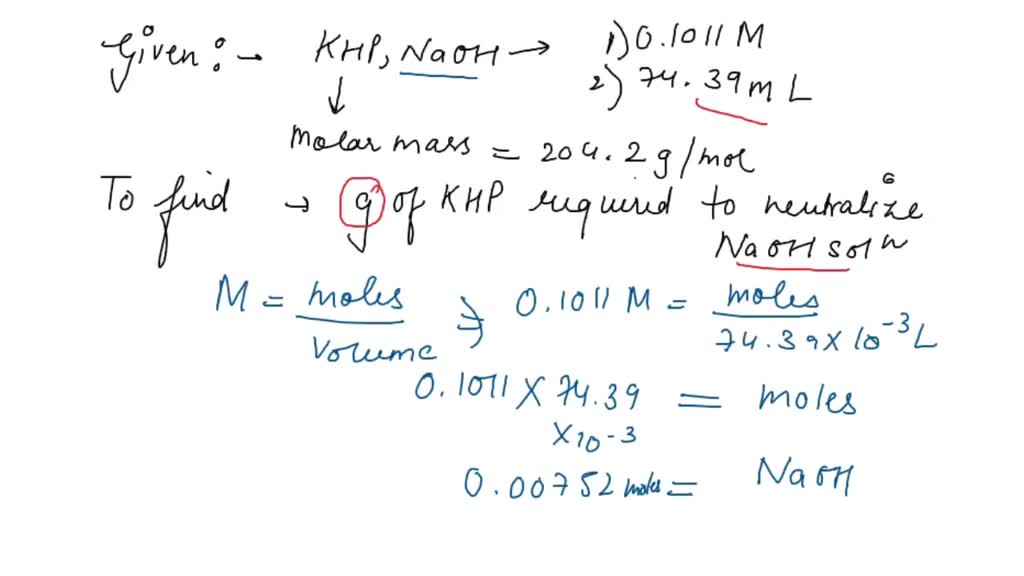 Given :- KHP, NaOH → 1) 0.1011 M
2) 74.39 mL
↓
Molar mass = 204.2 g/mol
To find → g of KHP required to neutralize
NaOH solⁿ
M = moles / Volume ⇒ 0.1011 M = moles / 74.39 × 10⁻³ L
0.1011 × 74.39 = moles
× 10⁻³
0.00752 moles = NaOH